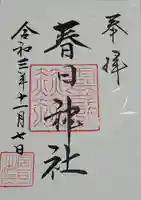 奉拝
春日神社
令和三年十一月七日